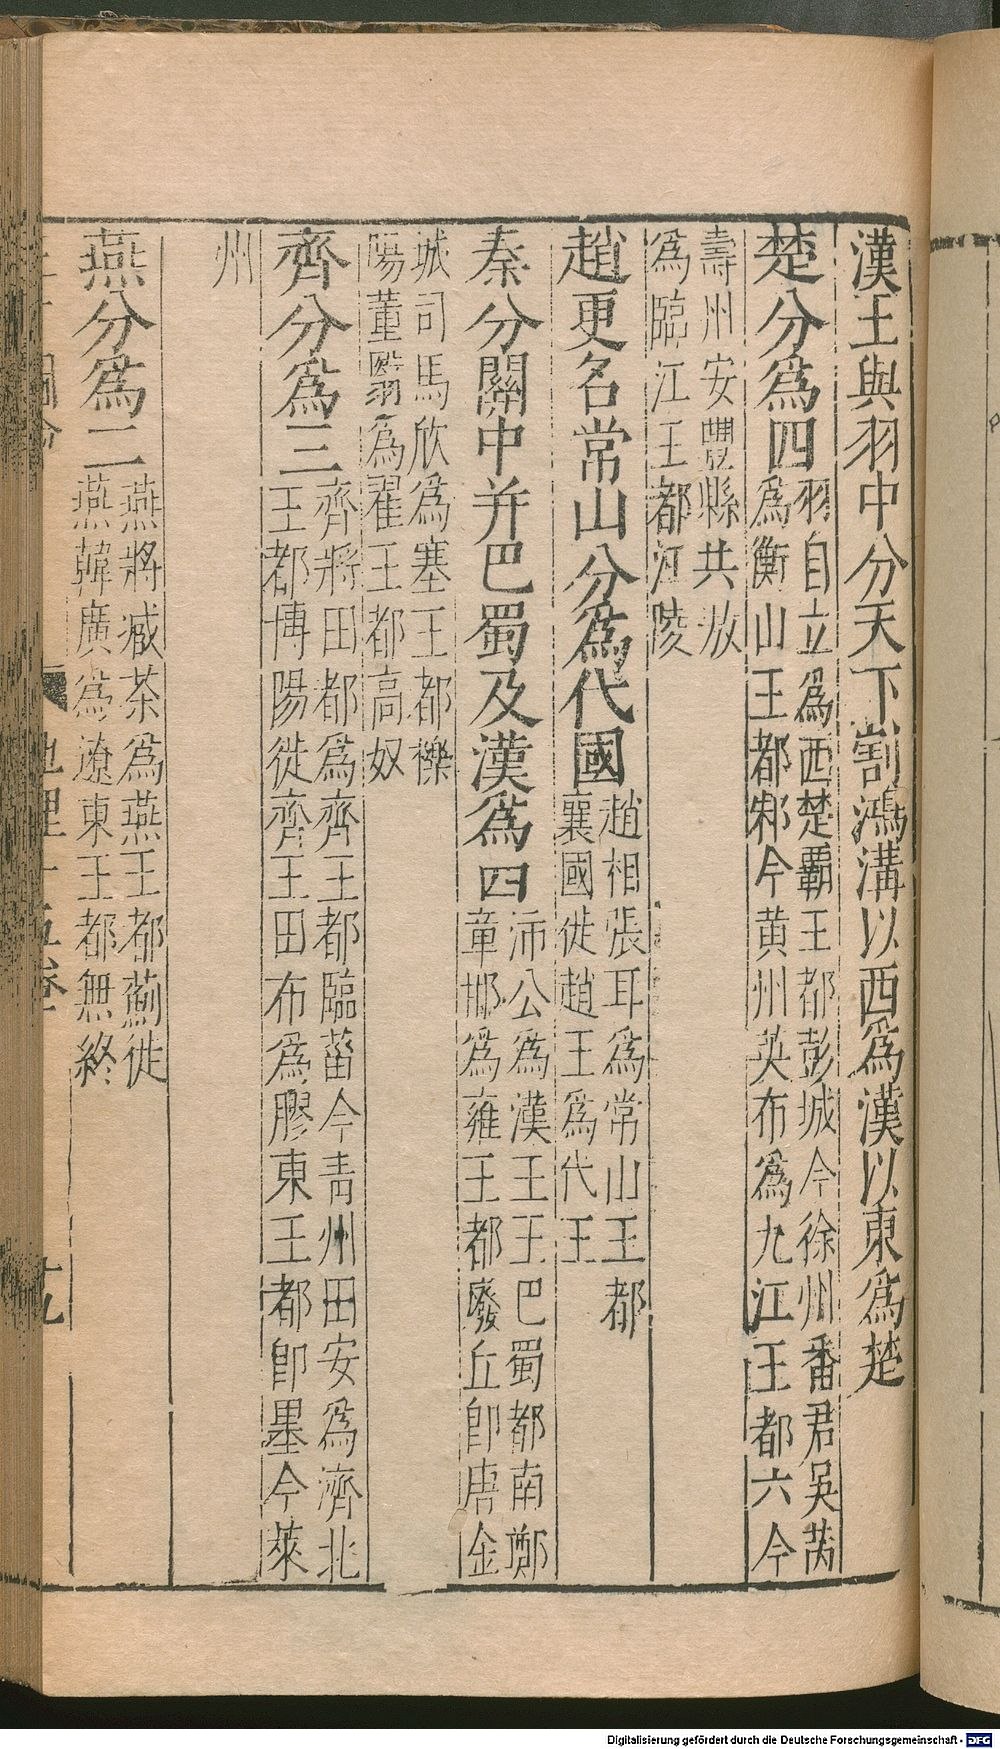 漢王與羽中分天下割鴻溝以西爲漢以東爲楚
楚分爲四
羽自立爲西楚覇王都彭城今徐州番君吳芮
爲衡山王都邾今黄州英布爲九江王都六今
壽州安豐縣共敖
爲臨江王都江陵
趙更名常山分爲代國
趙相張耳爲常山王都
襄國徙趙王爲代王
秦分關中并巴蜀及漢爲四
沛公爲漢王王巴蜀都南鄭
章邯爲雍王都廢丘卽唐金
城司馬欣爲塞王都櫟
陽董翳爲翟王都高奴
齊分爲三
齊將田都爲齊王都臨菑今青州田安爲濟北
王都博陽徙齊王田布爲膠東王都卽墨今萊
州
燕分爲二
燕將臧荼爲燕王都薊徙
燕韓廣爲遼東王都無終
地理十五卷
十九
Digitalisierung gefördert durch die Deutsche Forschungsgemeinschaft - DFG